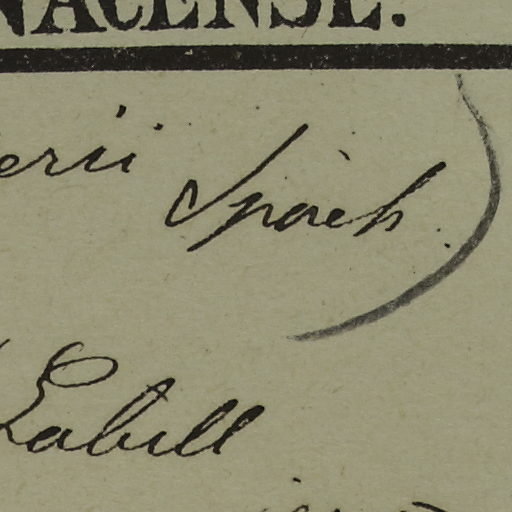 NACENSE.
erii Spach
Labill